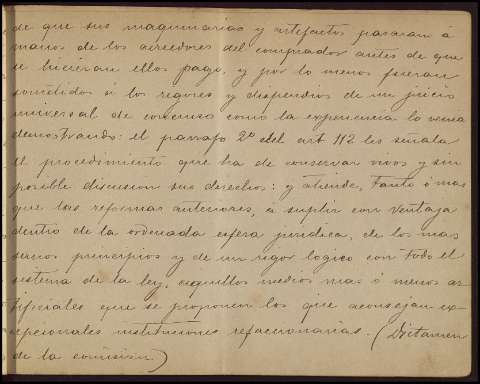 de que sus maquinarias y artefactos pasaran á
manos de los acreedores del comprador antes de que
se hicieran ellos pago, y por lo menos fueran
sometidos á los rigores y dispendios de un juicio
universal de concurso como la experiencia lo venía
demostrando: el parrafo 2º del art 112 les señala
el procedimiento que ha de conservar vivos y sin
posible discusion sus derechos: y atiende, tanto ó mas
que las reformas anteriores, á suplir con ventaja
dentro de la ordenada esfera jurídica, de los mas
sanos principios y de un rigor logico con todo el
sistema de la ley, aquellos medios mas ó menos ar-
tificiales que se proponen los que aconsejan ex-
cepcionales instituciones refaccionarias. (Dictamen
de la comision)